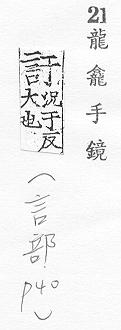 21 龍龕手鏡
况于反
大也
（言部 p40）